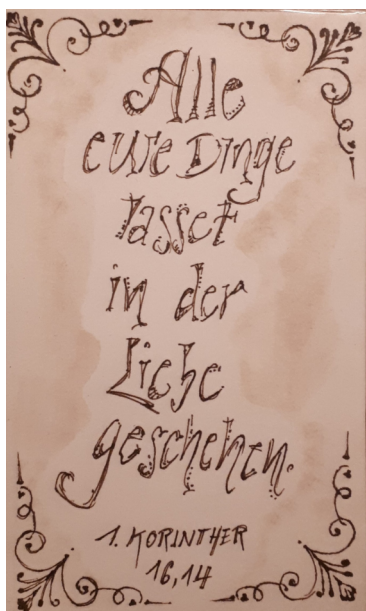 Alle
eure Dinge
lasset
in der
Liebe
geschehen.
1. KORINTHER
16,14